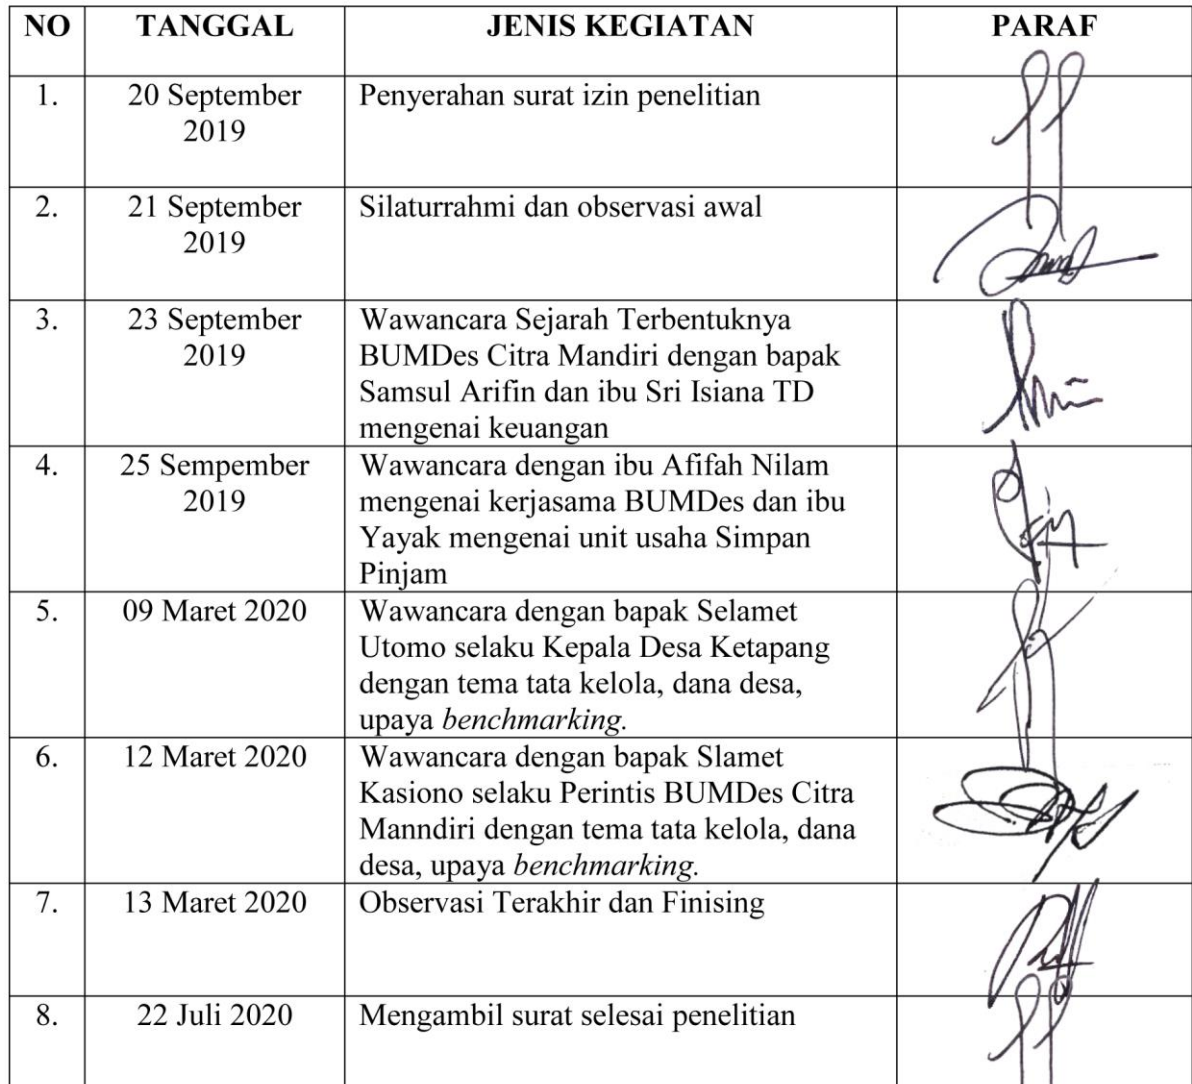 NO TANGGAL JENIS KEGIATAN PARAF
1. 20 September Penyerahan surat izin penelitian
2019
2. 21 September Silaturrahmi dan observasi awal
2019
3. 23 September Wawancara Sejarah Terbentuknya
2019 BUMDes Citra Mandiri dengan bapak
Samsul Arifin dan ibu Sri Isiana TD
mengenai keuangan
4. 25 Sempember Wawancara dengan ibu Afifah Nilam
2019 mengenai kerjasama BUMDes dan ibu
Yayak mengenai unit usaha Simpan
Pinjam
5. 09 Maret 2020 Wawancara dengan bapak Selamet
Utomo selaku Kepala Desa Ketapang
dengan tema tata kelola, dana desa,
upaya benchmarking.
6. 12 Maret 2020 Wawancara dengan bapak Slamet
Kasiono selaku Perintis BUMDes Citra
Manndiri dengan tema tata kelola, dana
desa, upaya benchmarking.
7. 13 Maret 2020 Observasi Terakhir dan Finising
8. 22 Juli 2020 Mengambil surat selesai penelitian